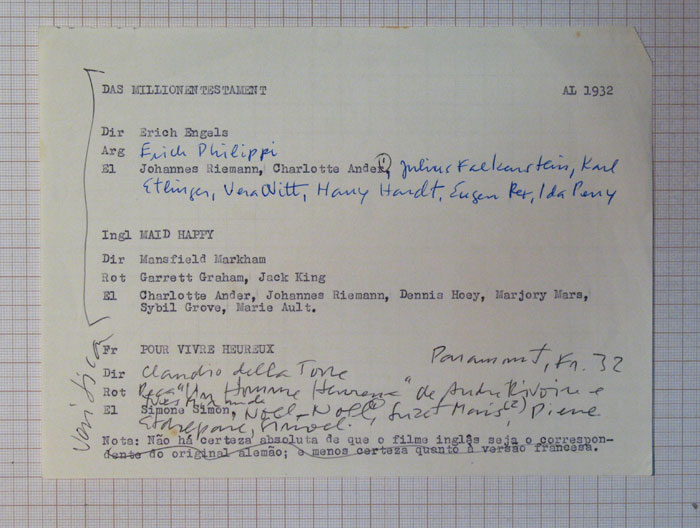 DAS MILLIONENTESTAMENT AL 1932
Dir Erich Engels
Arg Erich Philippi
El Johannes Riemann, Charlotte Ander, Julius Falkenstein, Karl
Etlinger, Vera Witt, Harry Hardt, Eugen Rex, Ida Perry
Ingl MAID HAPPY
Dir Mansfield Markham
Rot Garrett Graham, Jack King
El Charlotte Ander, Johannes Riemann, Dennis Hoey, Marjory Mars,
Sybil Grove, Marie Ault.
Fr POUR VIVRE HEUREUX
Paramount, Fr. 32
Dir Claudio della Torre
Rot Peça "Un Homme Heureux" de André Rivoire e
El Simone Simon, Noël-Noël, Suzet Maïs (2), Pierre
Nota: Não há certeza absoluta de que o filme inglês seja o correspon-
dente do original alemão; e menos certeza quanto à versão francesa.